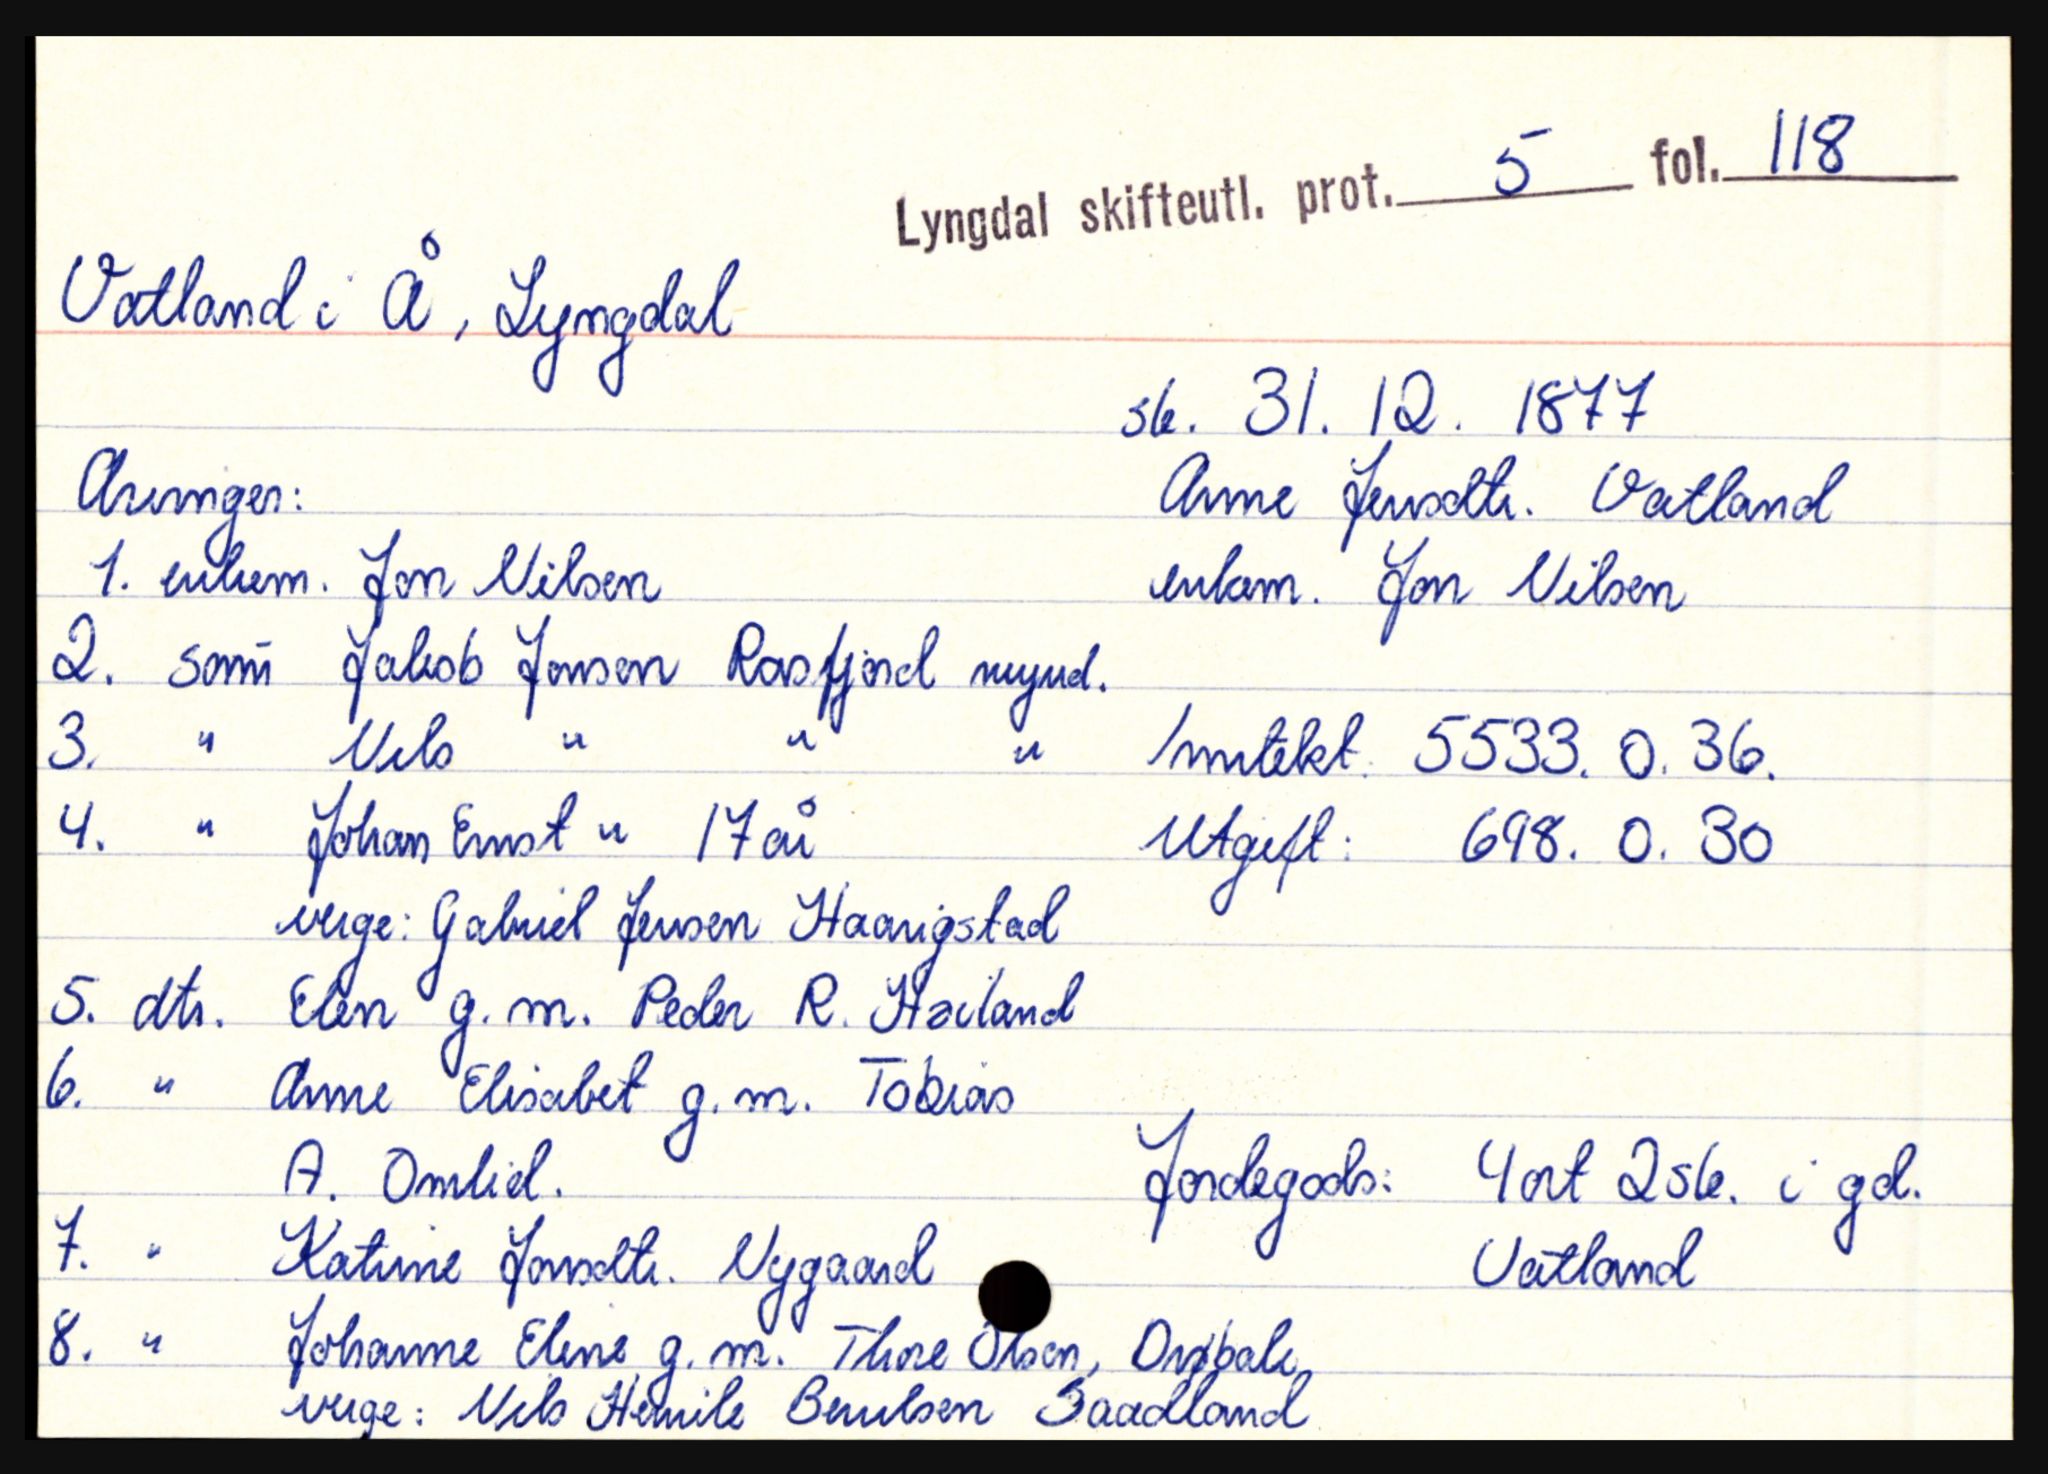 Lyngdal skifteutl. prot. 5 fol. 118
Vatland i Å, Lyngdal
sk. 31. 12. 1877
Arvinger: Anne Jensdtr. Vatland
1. enkem. Jon Nilsen enkem. Jon Nilsen
2. sønn Jakob Jonsen Rosfjord mynd.
3. " Nils " " " Inntekt: 5533. 0. 36.
4. " Johan Ernst " 17 år Utgift: 698. 0. 30
verge: Gabriel Jensen Haarigstad
5. dtr. Elen g. m. Peder R. Hæiland
6. " Anne Elisabet g. m. Tobias
A. Omlid. Jordegods: 4 ort 2 sk. i gd.
7. " Katrine Jonsdtr. Nygaard Vatland
8. " Johanne Eline g. m. Thore Olsen,
verge: Nils Henrik Berntsen Saadland